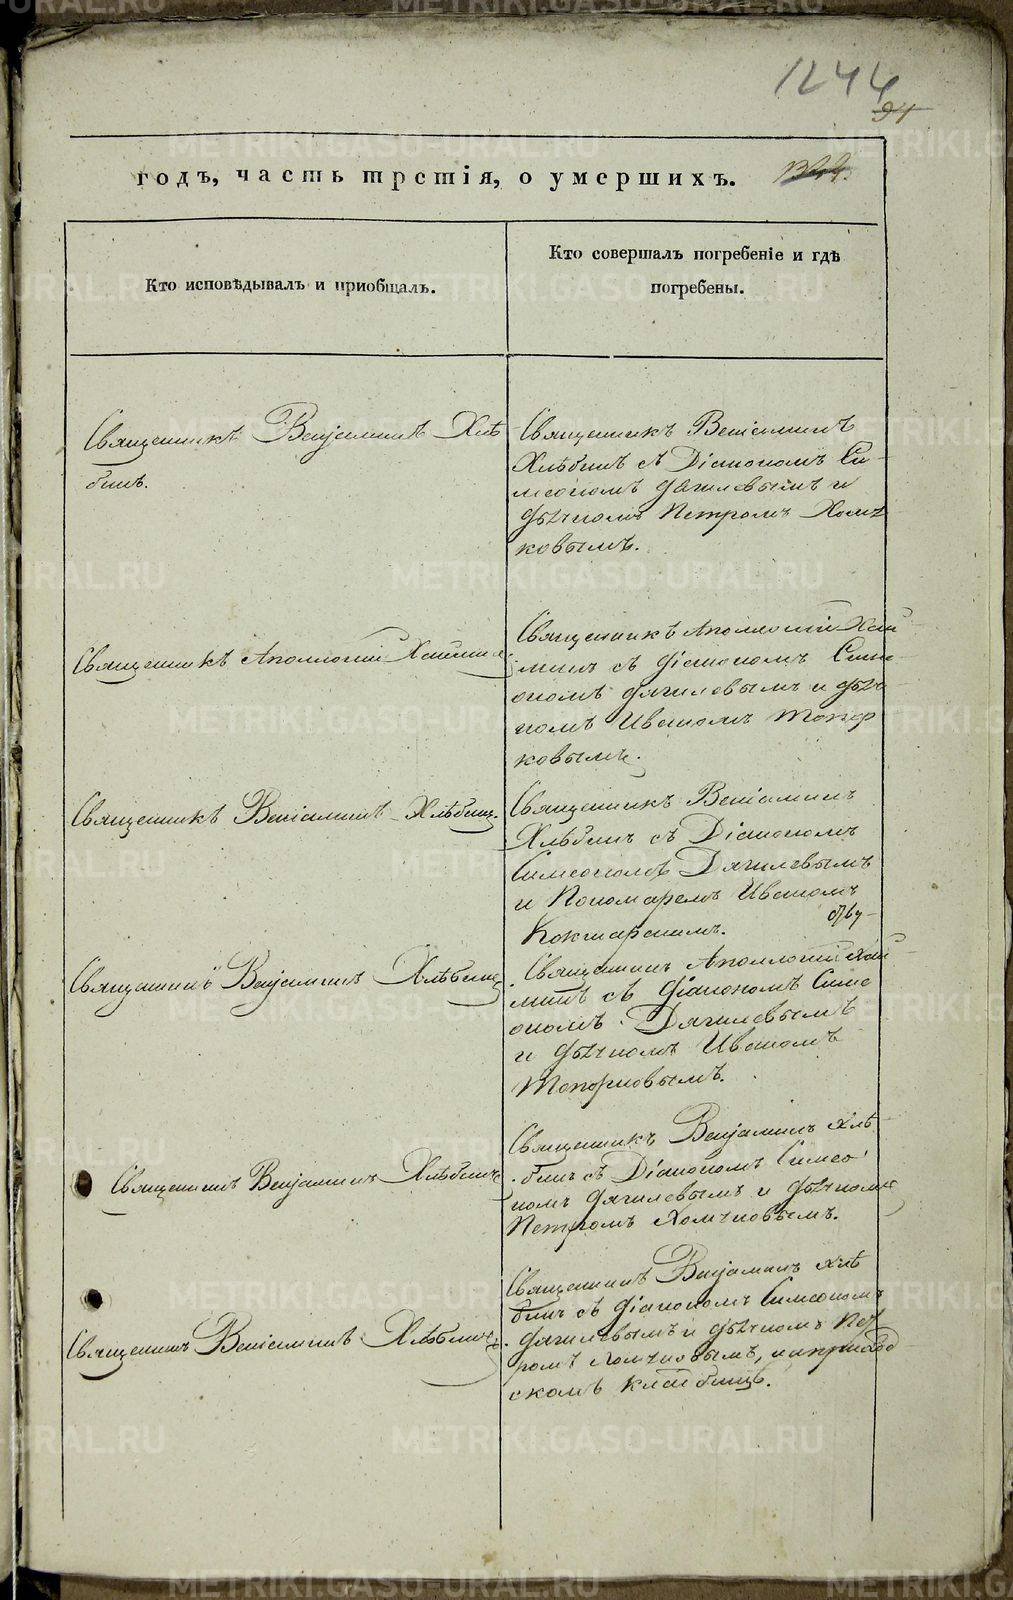 1244
91
годъ, часть третія, о умершихъ.
Кто исповѣдывалъ и пріобщалъ.
Кто совершалъ погребеніе и гдѣ
погребены.
Священникъ Веніаминъ Хлѣ
бинъ.
Священникъ Веніаминъ
Хлѣбинъ съ Діакономъ Си-
меономъ Дягилевымъ и
дьячкомъ Петромъ Хомя
ковымъ.
Священникъ Аполлоній
Священникъ Аполлоній
съ діакономъ Симе-
ономъ Дягилевымъ и дьяч-
комъ Иваномъ Топор
ковымъ.
Священникъ Веніаминъ Хлѣбинъ.
Священникъ Веніаминъ
Хлѣбинъ съ Діакономъ
Симеономъ Дягилевымъ
и Пономаремъ Иваномъ
Кокшарскимъ.
Священникъ Веніаминъ Хлѣбинъ
Священникъ Аполлоній
съ діакономъ Симе
ономъ Дягилевымъ
и дьячкомъ Иваномъ
Топорковымъ.
Священникъ Веніаминъ Хлѣбинъ
Священникъ Веніаминъ Хлѣ
бинъ съ Діакономъ Симео
номъ Дягилевымъ и дьячкомъ
Петромъ
Священникъ Веніаминъ Хлѣбинъ
Священникъ Веніаминъ Хлѣ
бинъ съ діакономъ Симеономъ
Дягилевымъ и дьячкомъ Пет
ромъ
скомъ кладбищѣ.
METRIKI.GASO-URAL.RU